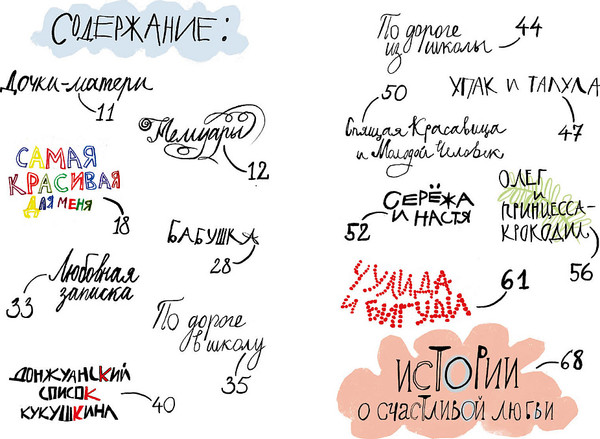 СОДЕРЖАНИЕ:
Дочки-матери
11
Мемуары
12
САМАЯ
КРАСИВАЯ
ДЛЯ МЕНЯ
18
БАБУШКА
28
Любовная
записка
33
По дороге
в школу
35
ДОНЖУАНСКИЙ
СПИСОК
КУКУШКИНА
40
По дороге
из школы
44
УПАК И ТАПУЛА
47
50
Спящая Красавица
и Молодой Человек
СЕРЁЖА
И НАСТЯ
52
ОЛЕГ
И
ПРИНЦЕССА-
КРОКОДИЛ
56
ЧУЛИДА
И БИГУДИ
61
ИСТОРИИ
О СЧАСТЛИВОЙ ЛЮБВИ
68